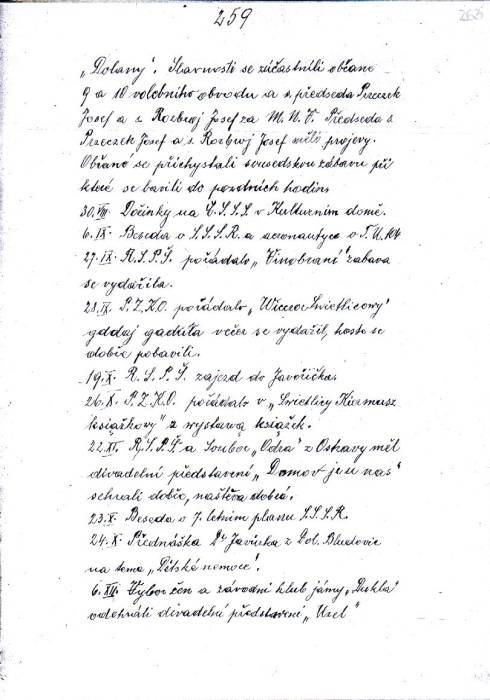 259
„Dolany". Slavnosti se zúčastnili občané
9 a 10 volebního obvodu a s. předseda Przeczek
Josef a s. Rozbroj Josef za M.N.V. Předseda s.
Przeczek Josef a s. Rozbroj Josef měli projevy.
Občané se přichystali sousedskou zábavu při
které se bavili do pozdních hodin.
30.VIII. Dožinky na Č.S.S.S. v Kulturním domě.
6.IX. Beseda o S.S.S.R. a aeronautyce o T.U. 104
27.IX. R.S.P.Š. pořádalo „Vinobraní" zabava
se vydařila.
28.IX. P.Z.K.O. pořádalo „Wieczor Świetlicowy"
gddaj gaduła večer se vydařil, hosté se
dobře pobavili.
19.X. R.S.P.Š. zajezd do Javořička.
26.X. P.Z.K.O. pořádalo v „Świetlicy Kiermasz
książkowy" z wystawą książek.
22.XI. R.S.P.Š. a Soubor „Odra" z Ostravy měl
divadelní představení „Domov je u nás"
sehráli dobře, naštěva dobrá.
23.X. Beseda o 7. letním planu S.S.S.R.
24.X. Přednáška Dr Javůrka z Dol. Bludovic
na tema „Dětské nemoce".
6.XII. Vybor žen a závodní klub jámy „Dukla"
odehráli divadelní představení „Uzel"